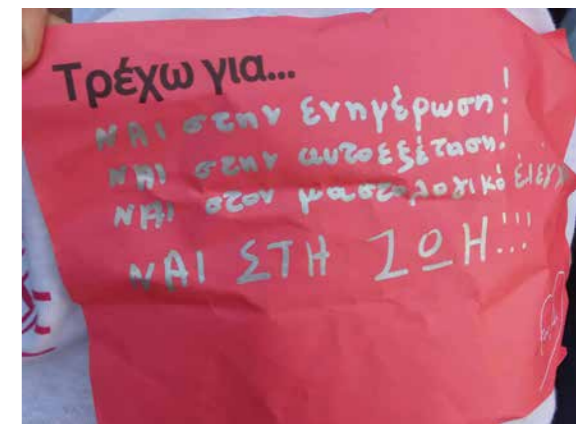 Τρέχω για...
ΝΑΙ στην ενημέρωση!
ΝΑΙ στην αυτοεξέταση!
ΝΑΙ στον μαστολογικό
ΝΑΙ ΣΤΗ ΖΩΗ!!!